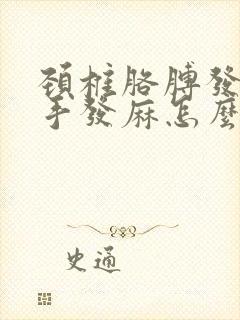 頸椎胳膊發
手發麻怎麼
史通